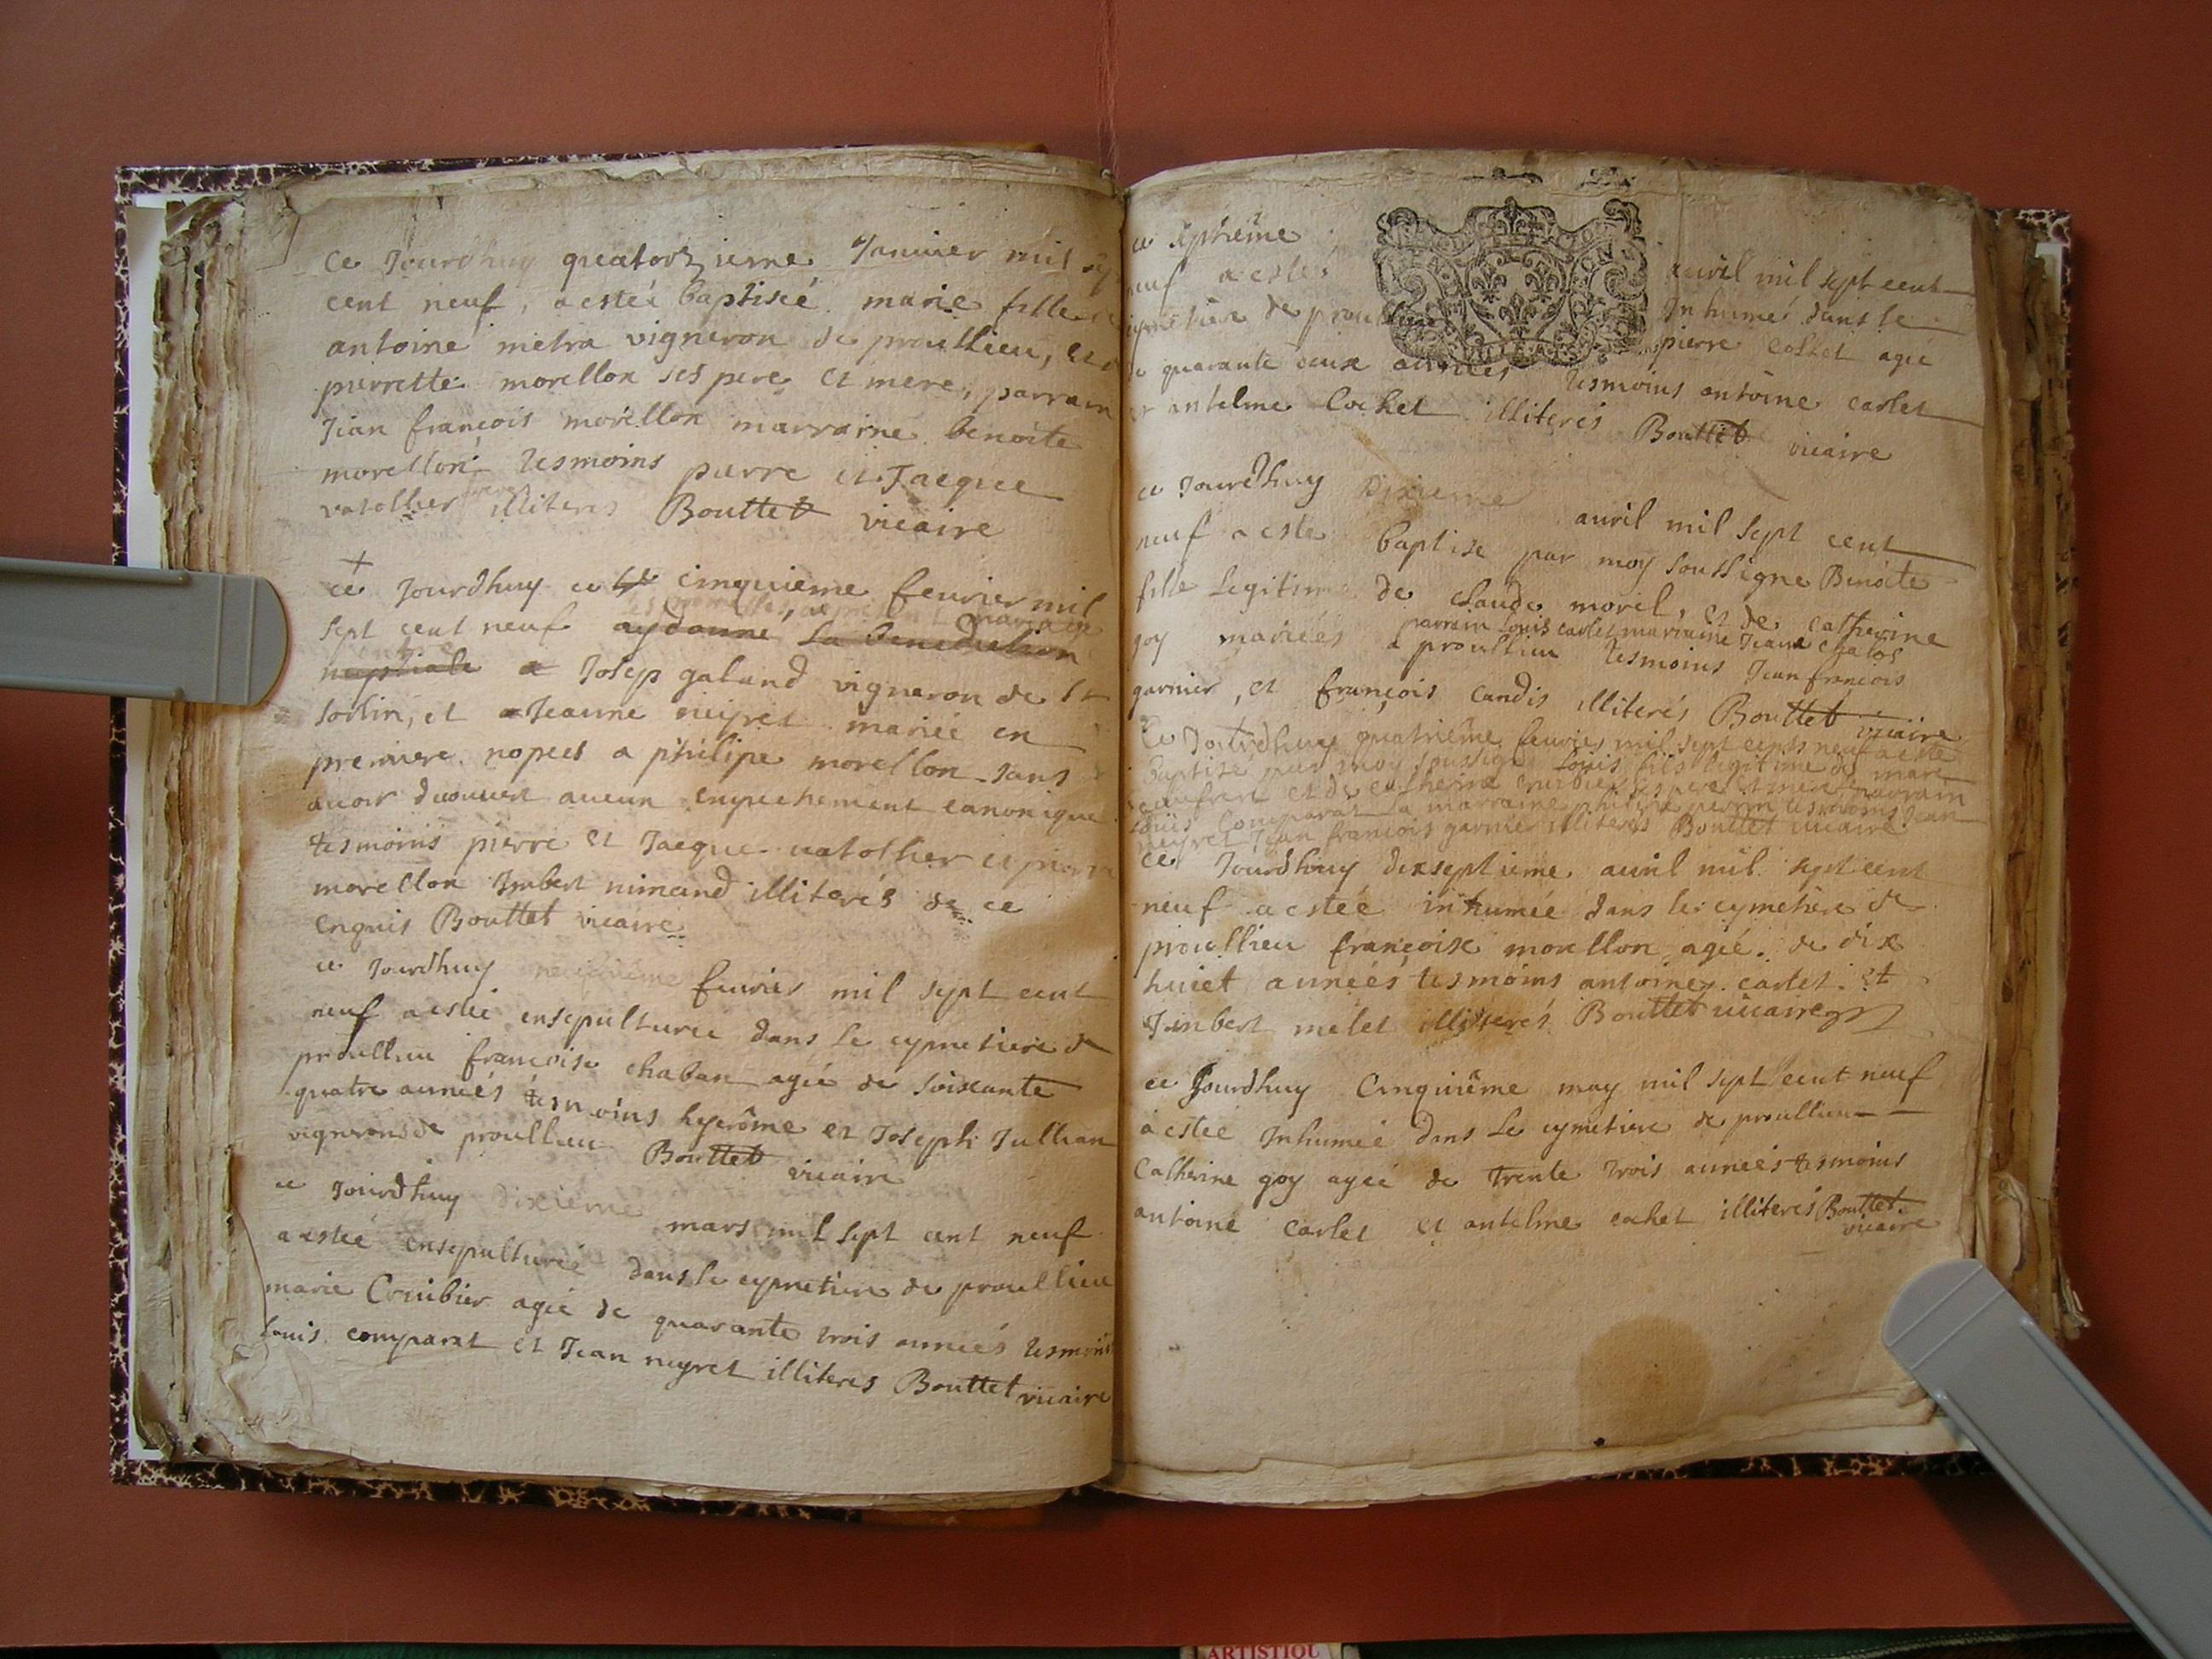 Ce Jourdhuy quatorzieme Januier mil
cent neuf, a esteé baptiseé marie fille
antoine metra vigneron de proullieu, et
pierrette morellon ses pere et mere, parrain
Jean françois morellon marraine benoite
morellon tesmoins pierre et Jacque
vatollier freres illiteres Bouttet vicaire
+
ce Jourdhuy ce cinquieme feurier mil
mariage
sept cent neuf ay donné la benediction
nuptiale a Josep galand vigneron de St
sorlin, et a Jeanne neyret marieé en
premiere nopces a philipe morellon sans
auoir decouuert aucun empechement canonique
tesmoins pierre et Jacque vatollier et pierre
morellon Imbert nimand illiterés de ce
enquis Bouttet vicaire
ce Jourdhuy neufuieme feurier mil sept cent
neuf a estée ensepulturee dans le cymetiere de
proullieu françoise chaban ageé de soixante
quatre anneés tesmoins hyerôme et Joseph Jullian
vignerons de proullieu Bouttet vicaire
ce Jourdhuy dixieme mars mil sept cent neuf
a esteé ensepultureé dans le cymetiere de proullieu
marie Cruibier ageé de quarante trois anneés tesmoins
louis comparat et Jean neyret illiteres Bouttet vicaire
ce septiême auril mil sept cent
neuf a esté Inhumé dans le
cymetiere de proullieu pierre collet agé
de quarante deux anneés tesmoins antoine carlet
et antelme Cochet illiterés Bouttet vicaire
ce Jourdhuy Dixieme auril mil sept cent
neuf a este baptise par moy soussigne Benoite
fille legitime de claude morel, et de catherine
parrain louis carlet marraine Jeane
goy marieés a proullieu tesmoins Jean françois
garnier, et françois candis illiterés Bouttet vicaire
Ce Jourdhuy quatriême feurier mil sept cents neuf a este
baptisé par moy soussigné louis fils legitime de marc
et de catherine cruibier ses pere et mere parrain
louis Comparat la marraine perrin tesmoins Jean
neyret Jean françois garnier illiterés Bouttet vicaire
ce Jourdhuy dixseptieme auril mil sept cent
neuf a esteé inhumée dans le cymetiere de
proullieu françoise morellon ageé de dix
huict anneés tesmoins antoine carlet et
Jmbert melet illiterés Bouttet vicaire
ce Jourdhuy Cinquiême may mil sept cent neuf
a esteé Inhumeé dans le cymetiere de proullieu
Catherine goy ageé de trente trois anneés tesmoins
antoine carlet et antelme cochet illiterés Bouttet
vicaire
ARTISTIQU